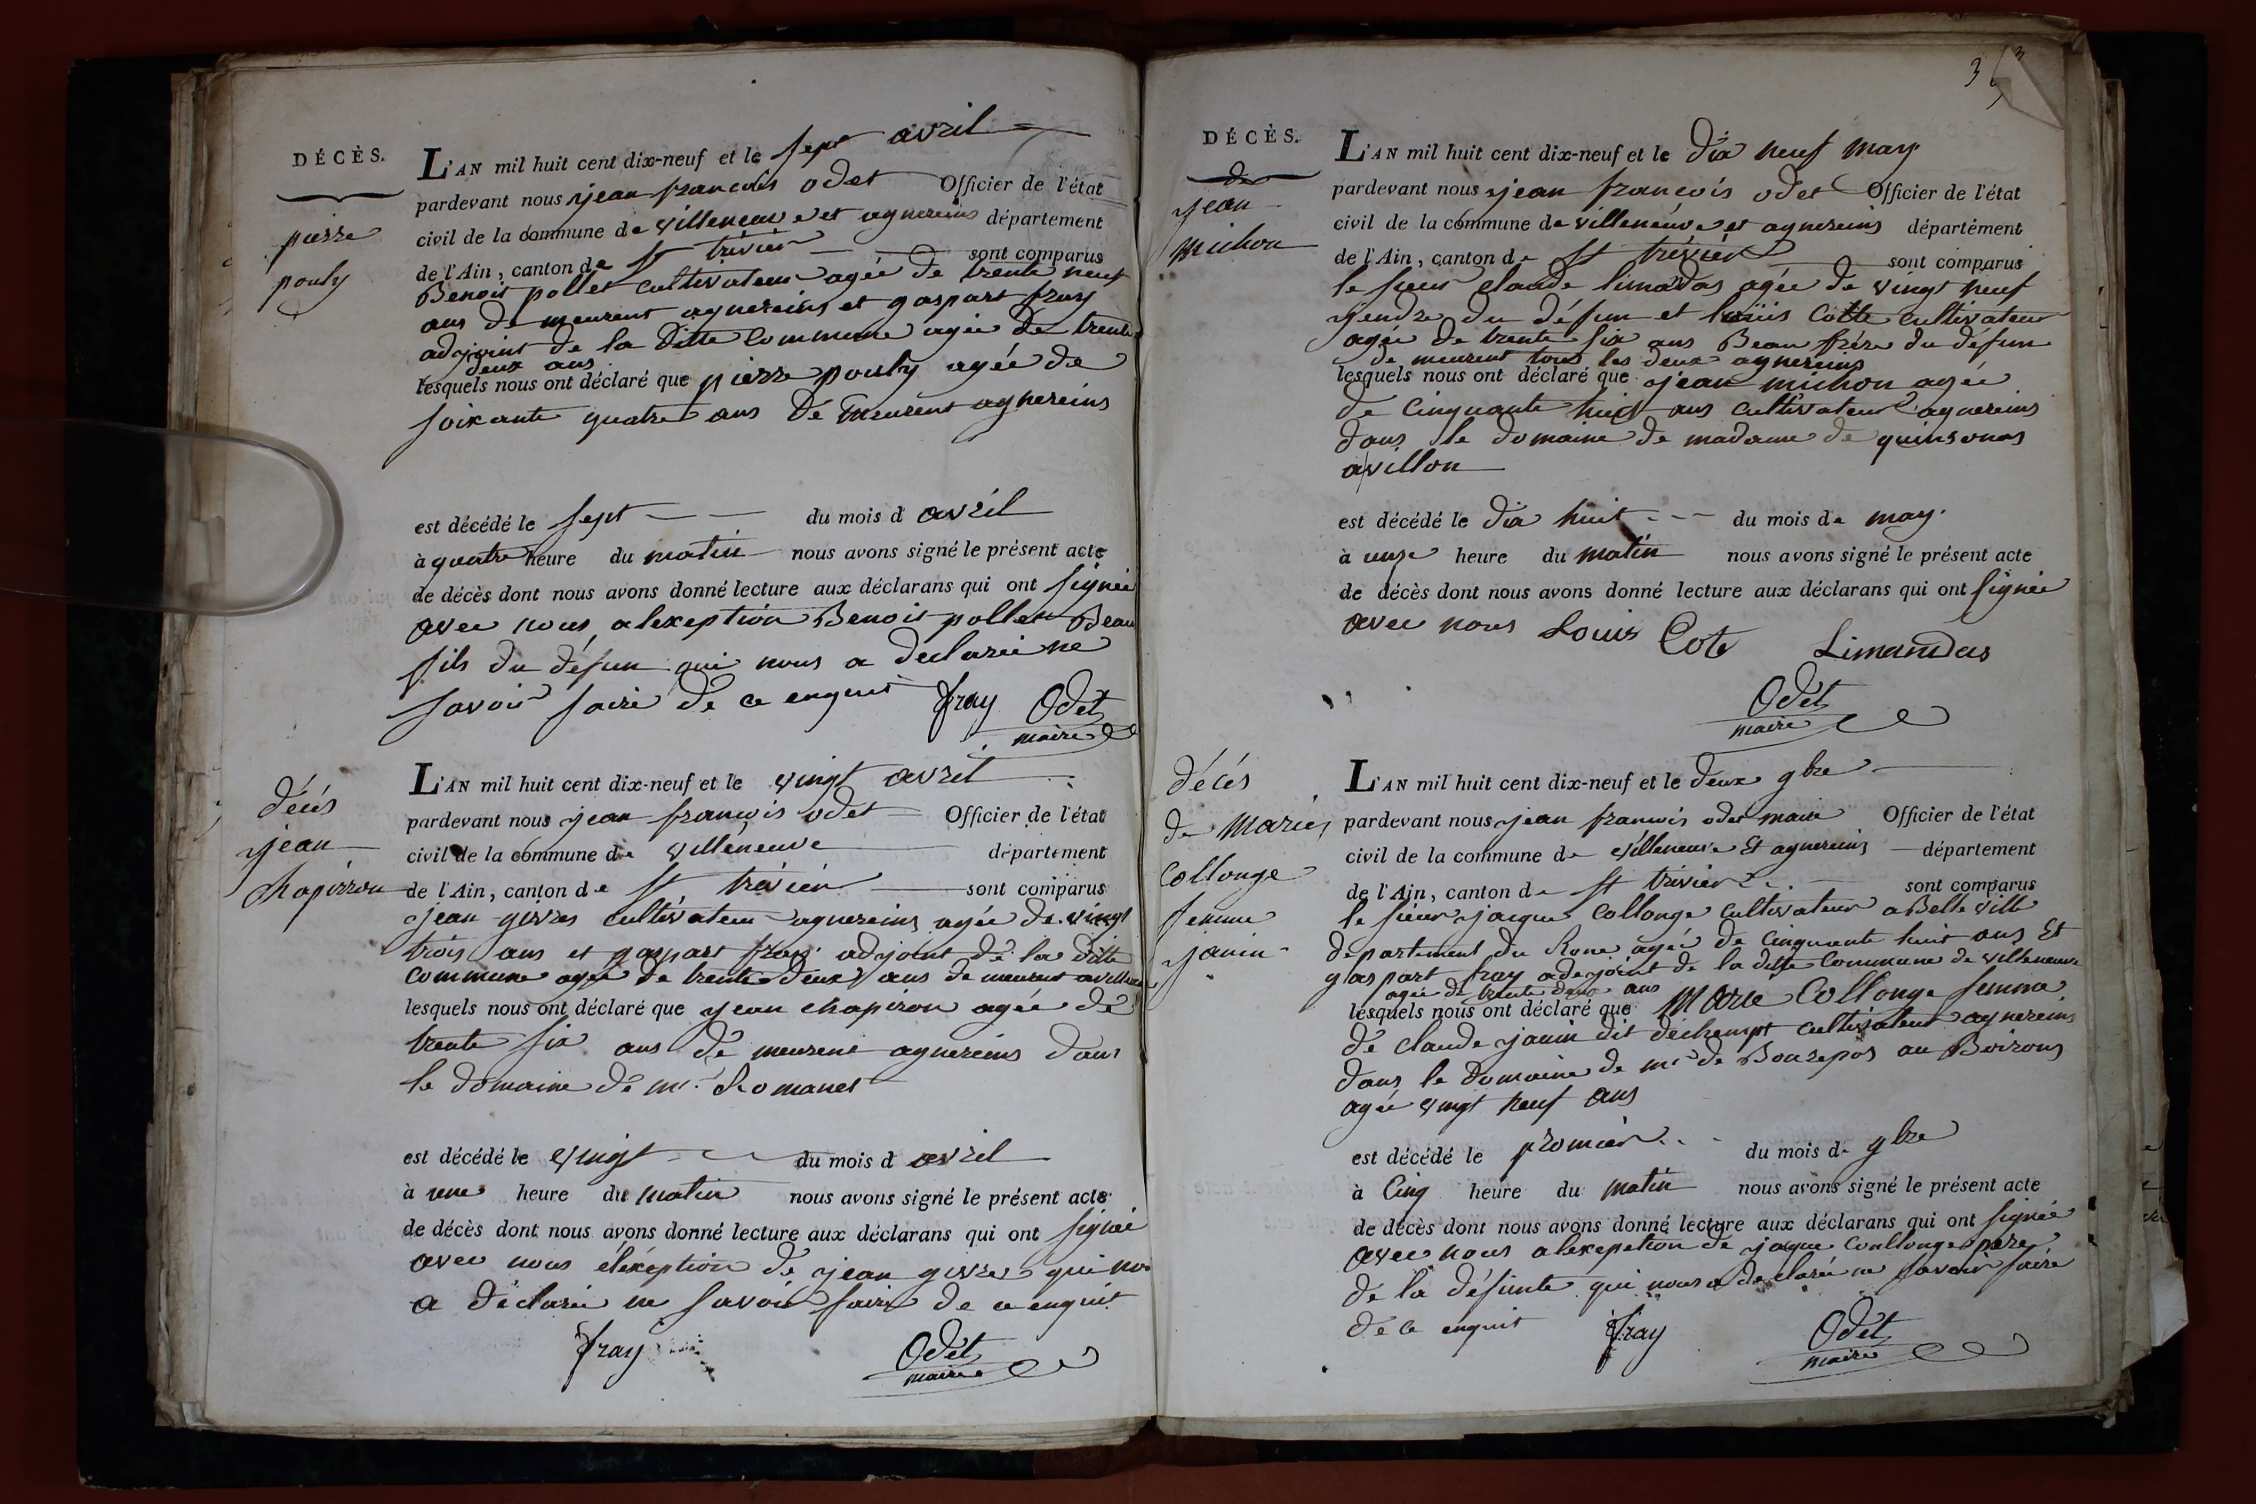 DÉCÈS.
pierre
pouly
L'AN mil huit cent dix-neuf et le sept avril
pardevant nous jean francois odet Officier de l'état
civil de la commune de villeneuve et agnereins département
de l'Ain, canton de St trévier sont comparus
Benoit pollet cultivateur agée de trente neuf
ans de meurent agnereins et gaspart fray
adjoint de la ditte commune agée de trente
deux ans
lesquels nous ont déclaré que pierre pouly agée de
soixante quatre ans de meurent agnereins
est décédé le sept du mois d avril
à quatre heure du matin nous avons signé le présent acte
de décès dont nous avons donné lecture aux déclarans qui ont signée
avec nous alexeption Benoit pollet Beau
fils du défun qui nous a declarée ne
savoir faire de ce enquit fray Odet
maire
décés
jean
chapirron
L'AN mil huit cent dix-neuf et le vingt avril
pardevant nous jean francois odet Officier de l'état
civil de la commune de villeneuve département
de l'Ain, canton de St trévier sont comparus
jean givres cultivateur agnereins agée de vingt
trois ans et gaspart fray adjoint de la ditte
commune agée de trente deux ans de meurent
lesquels nous ont déclaré que jean chapiron agée de
trente six ans de meurent agnereins dans
le domaine de mr. Romanet
est décédé le vingt du mois d avril
à une heure du matin nous avons signé le présent acte
de décès dont nous avons donné lecture aux déclarans qui ont signée
avec nous éléxeption de jean givre qui nou
a déclarée ne savoir faire de ce enquit
fray Odet
maire
DÉCÈS.
de
jean
michon
L'AN mil huit cent dix-neuf et le dix neuf may
pardevant nous jean francois odet Officier de l'état
civil de la commune de villeneuve et agnereins département
de l'Ain, canton de St trévier sont comparus
le sieur claude limadas agée de vingt neuf
gendre du défun et louis Cotte cultivateur
agée de trente six ans Beau frére du défun
de meurent tous les deux agnereins
lesquels nous ont déclaré que jean michon agée
de cinquante huit ans cultivateur agnereins
dans le domaine de madame de quinsonas
avillon
est décédé le dix huit du mois de may.
à unze heure du matin nous avons signé le présent acte
de décès dont nous avons donné lecture aux déclarans qui ont signée
avec nous Louis Cote Limandas
Odet
maire
décés
de marie
collonge
femme
janin
L'AN mil huit cent dix-neuf et le deux 9bre
pardevant nous jean francois odet maire Officier de l'état
civil de la commune de villeneuve Et agnereins département
de l'Ain, canton de St trévier sont comparus
le sieur jacque Collonge cultivateur a Belle ville
département du Rone agée de cinquante huit ans Et
gaspart fray adejoint de la ditte commune de villeneuve
agée de trente deux ans
lesquels nous ont déclaré que Marie Collonge femme
de claude janin dit dechempt cultivateur agnereins
dans le domaine de mr de Bourepos au Boirons
agée vingt neuf ans
est décédé le promier du mois de 9bre
à Cinq heure du matin nous avons signé le présent acte
de décès dont nous avons donné lecture aux déclarans qui ont signée
avec nous alexepetion de jaque Conllonge pere
de la défunte qui nous a declarée ne savoir faire
de ce enquit fray Odet
maire